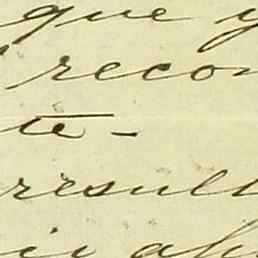 que y
recon
te-
result